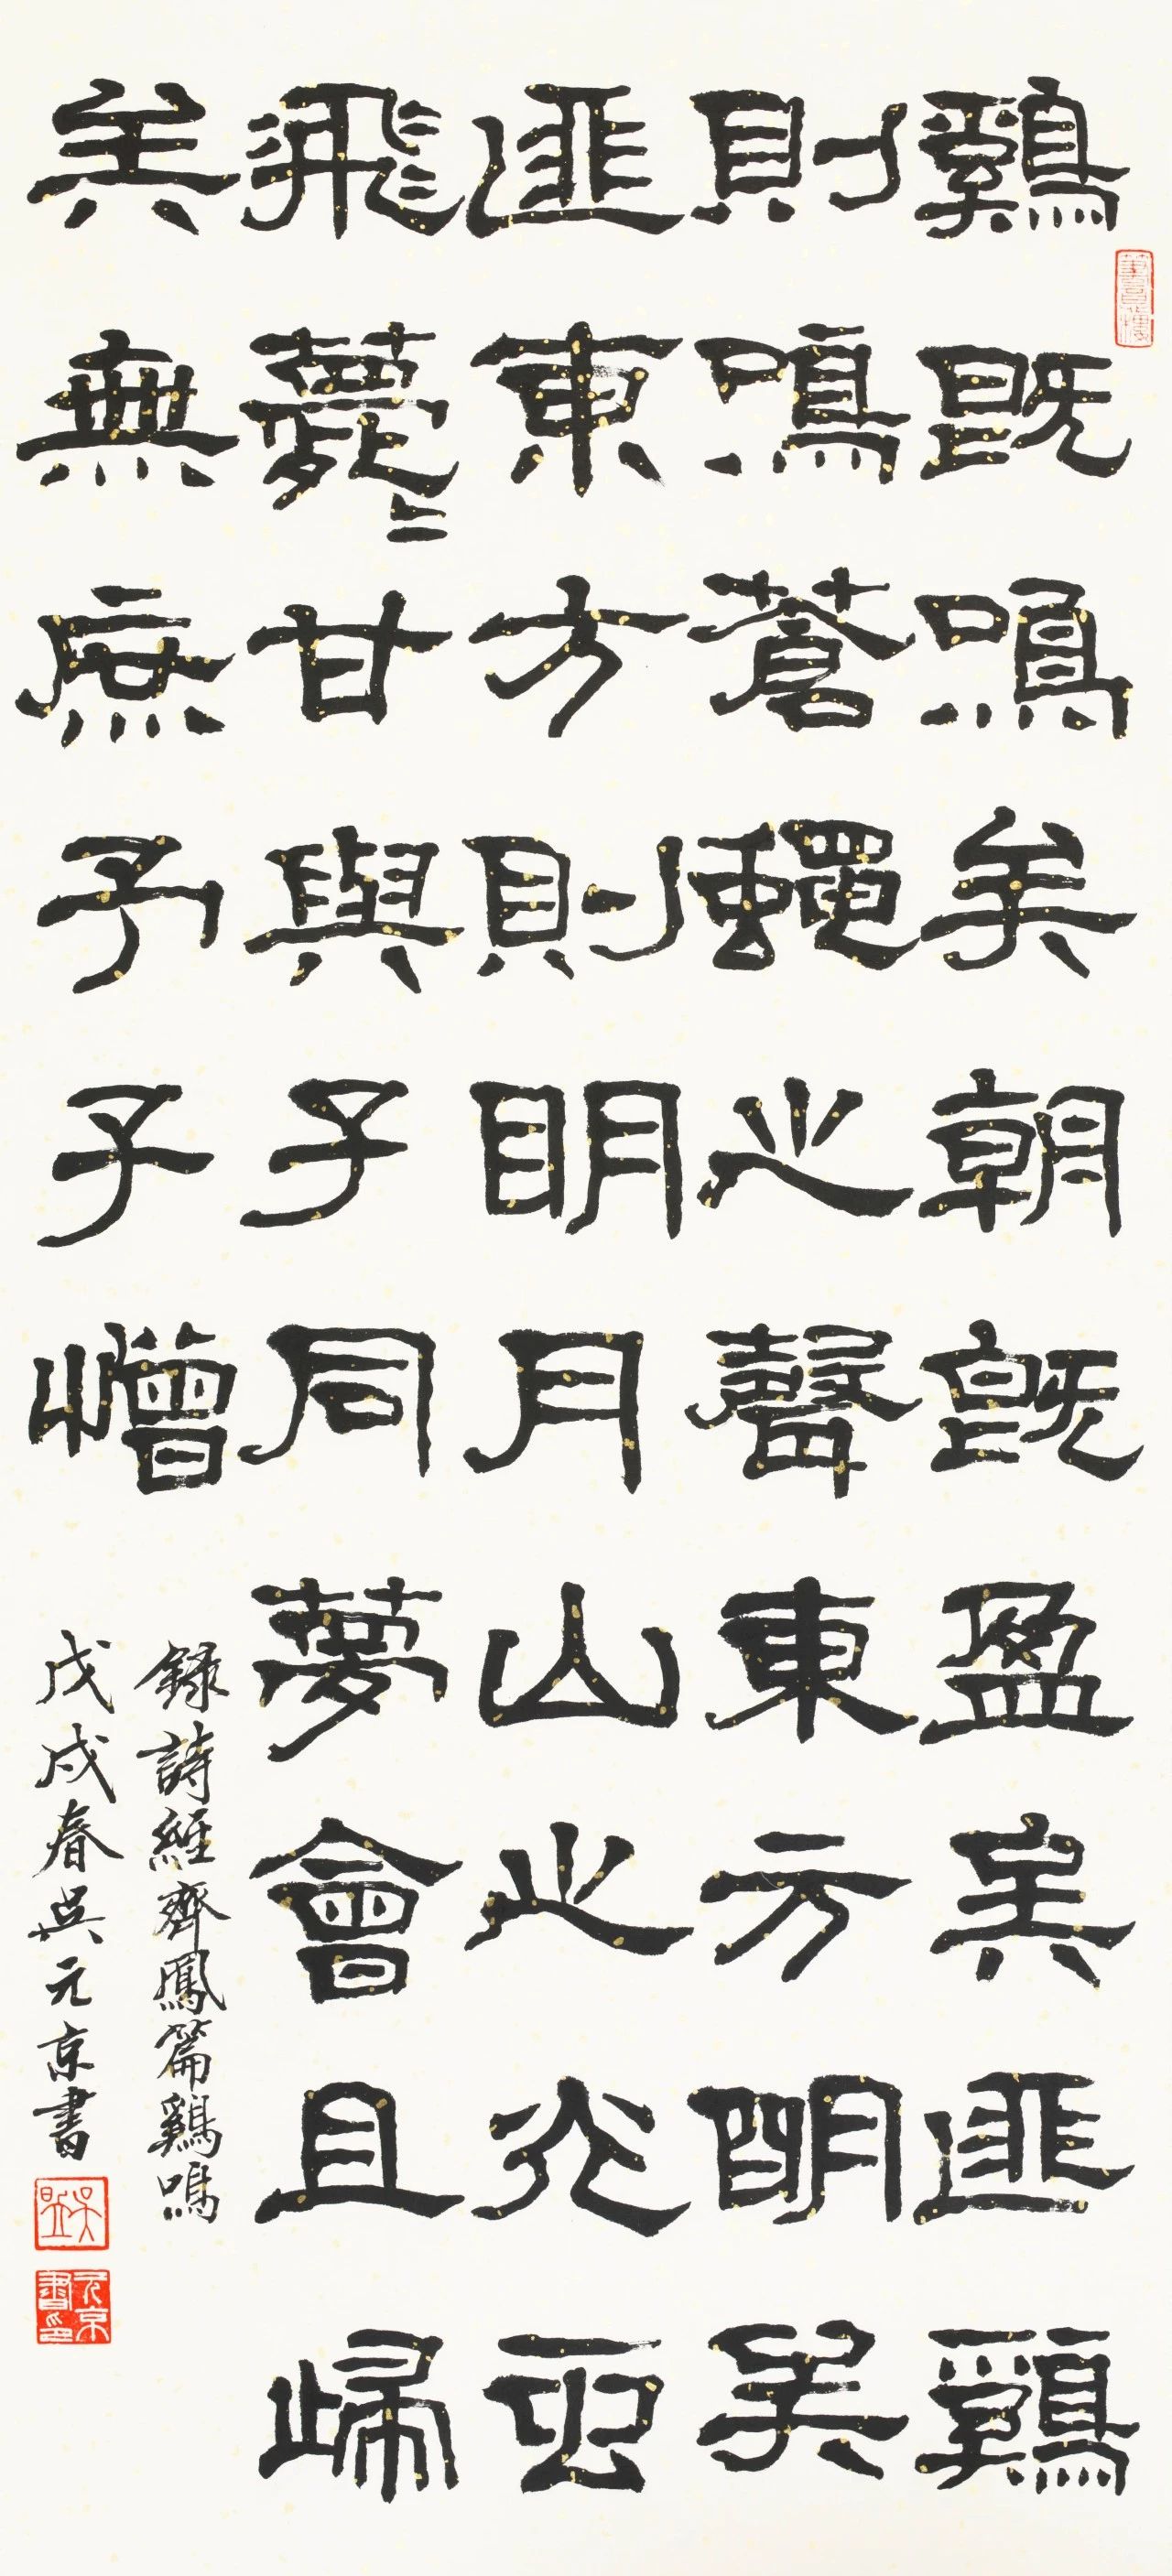 鷄既鳴矣朝既盈矣匪鷄
則鳴蒼蠅之聲東方明矣
匪東方則明月出之光虫
飛薨〻甘與子同夢會且歸
矣無庶予子憎
錄詩經齊鳳篇鷄鳴
戊戌春吳元京書
元京書印